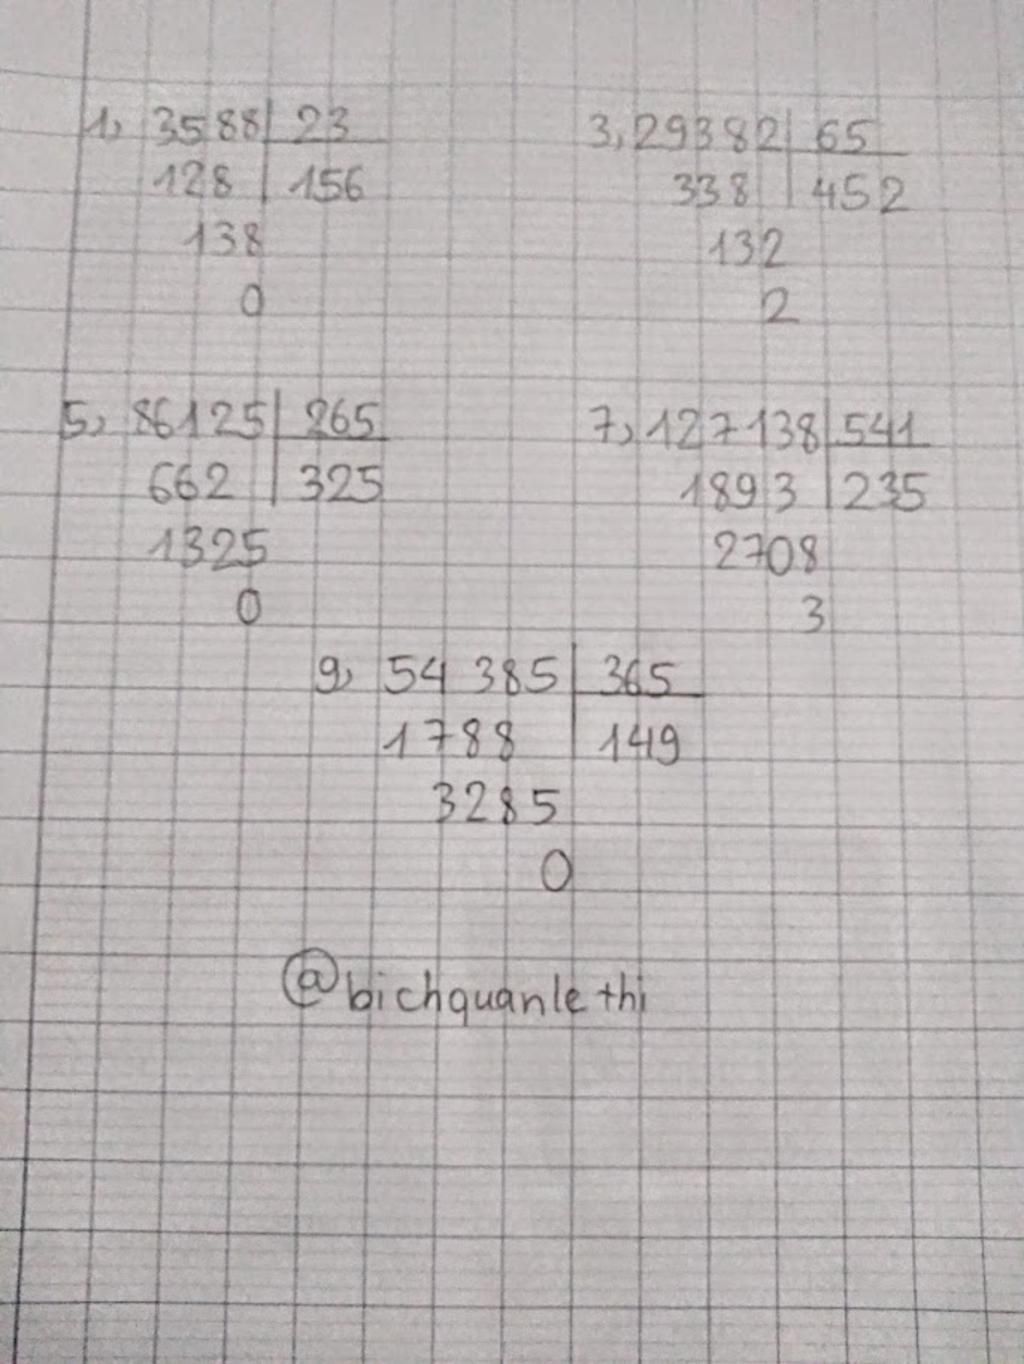 1, 3588 23 3, 29382 65
128 156 338 452
138 132
0 2
5, 86125 265 7, 127138 541
662 325 1893 235
1325 2708
0 3
9, 54 385 365
1788 149
3285
0
@bichquanle thi